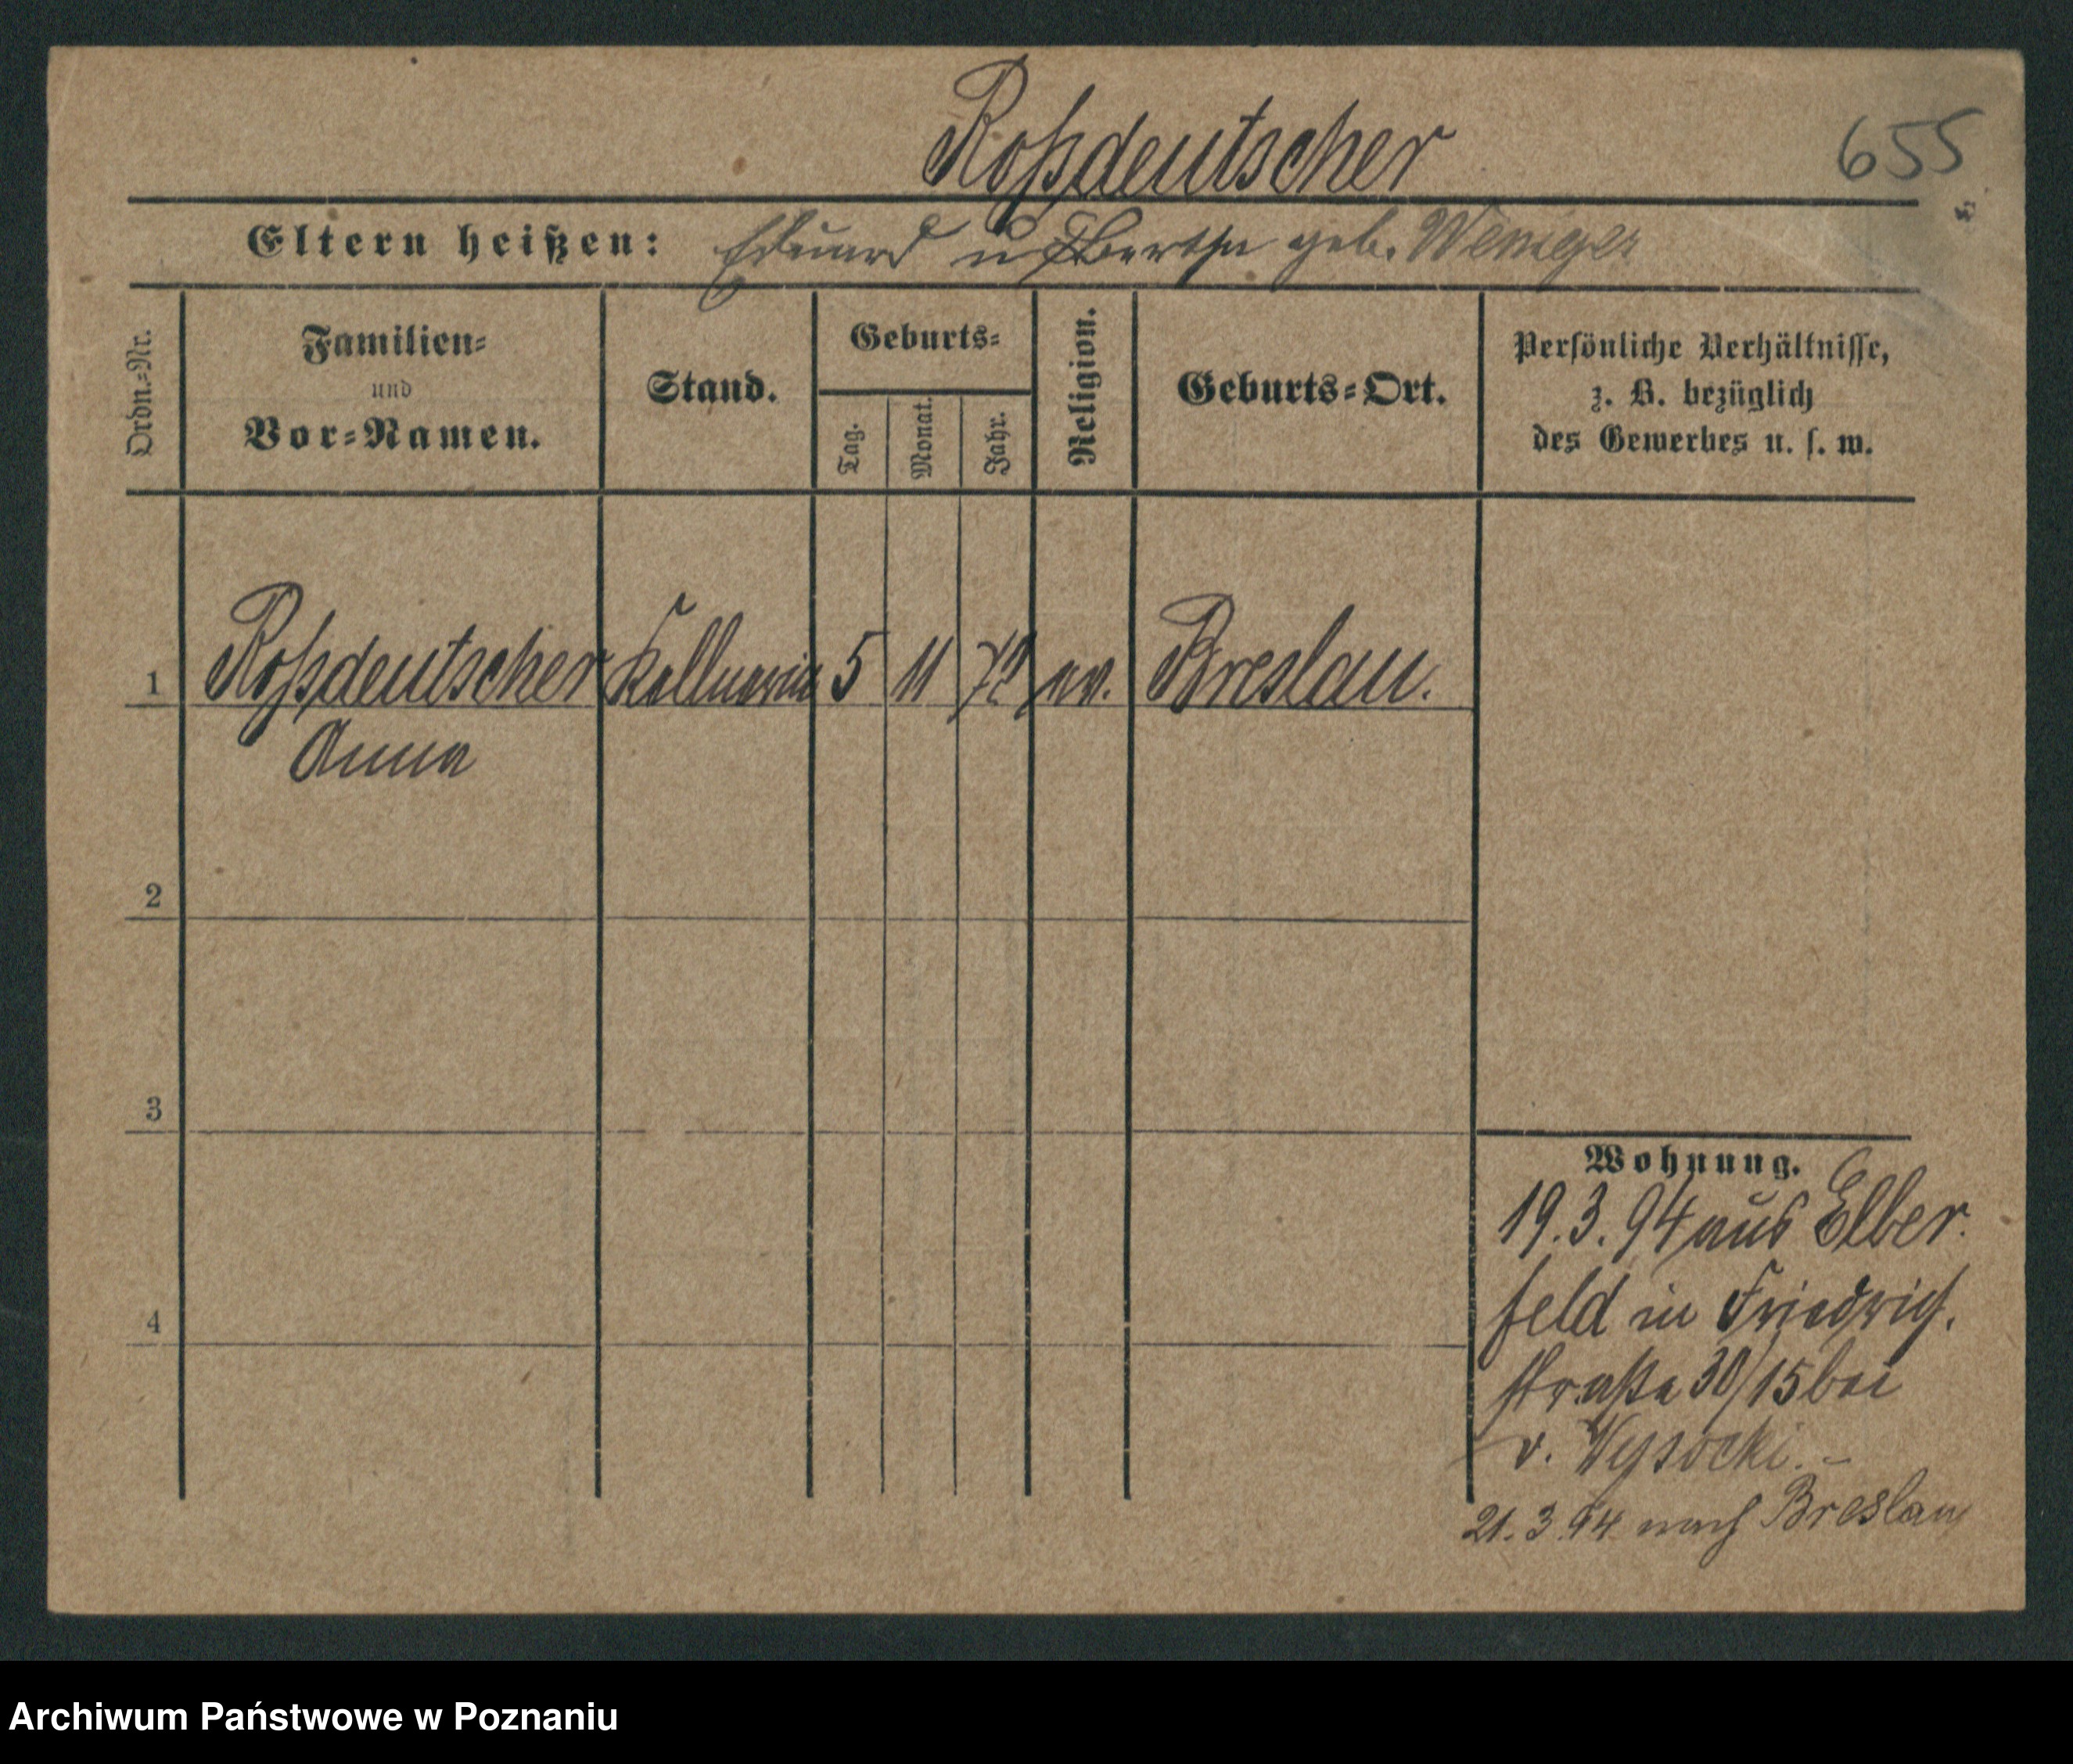 Roßdeutscher
655
Eltern heißen: Eduard u. Bertha geb. Weniger
Ordn.=Nr.
Familien=
und
Vor=Namen.
Stand.
Geburts=
Tag.
Monat.
Jahr.
Religion.
Geburts=Ort.
Persönliche Verhältnisse,
z. B. bezüglich
des Gewerbes u. s. w.
1 Roßdeutscher Kellnerin 5 11 72 ev. Breslau.
Anna
2
3
4
Wohnung.
19.3.94 aus Elber
feld in Friedrich.
straße 30/15 bei
v. Wysocki. –
21.3.94 nach Breslau
Archiwum Państwowe w Poznaniu